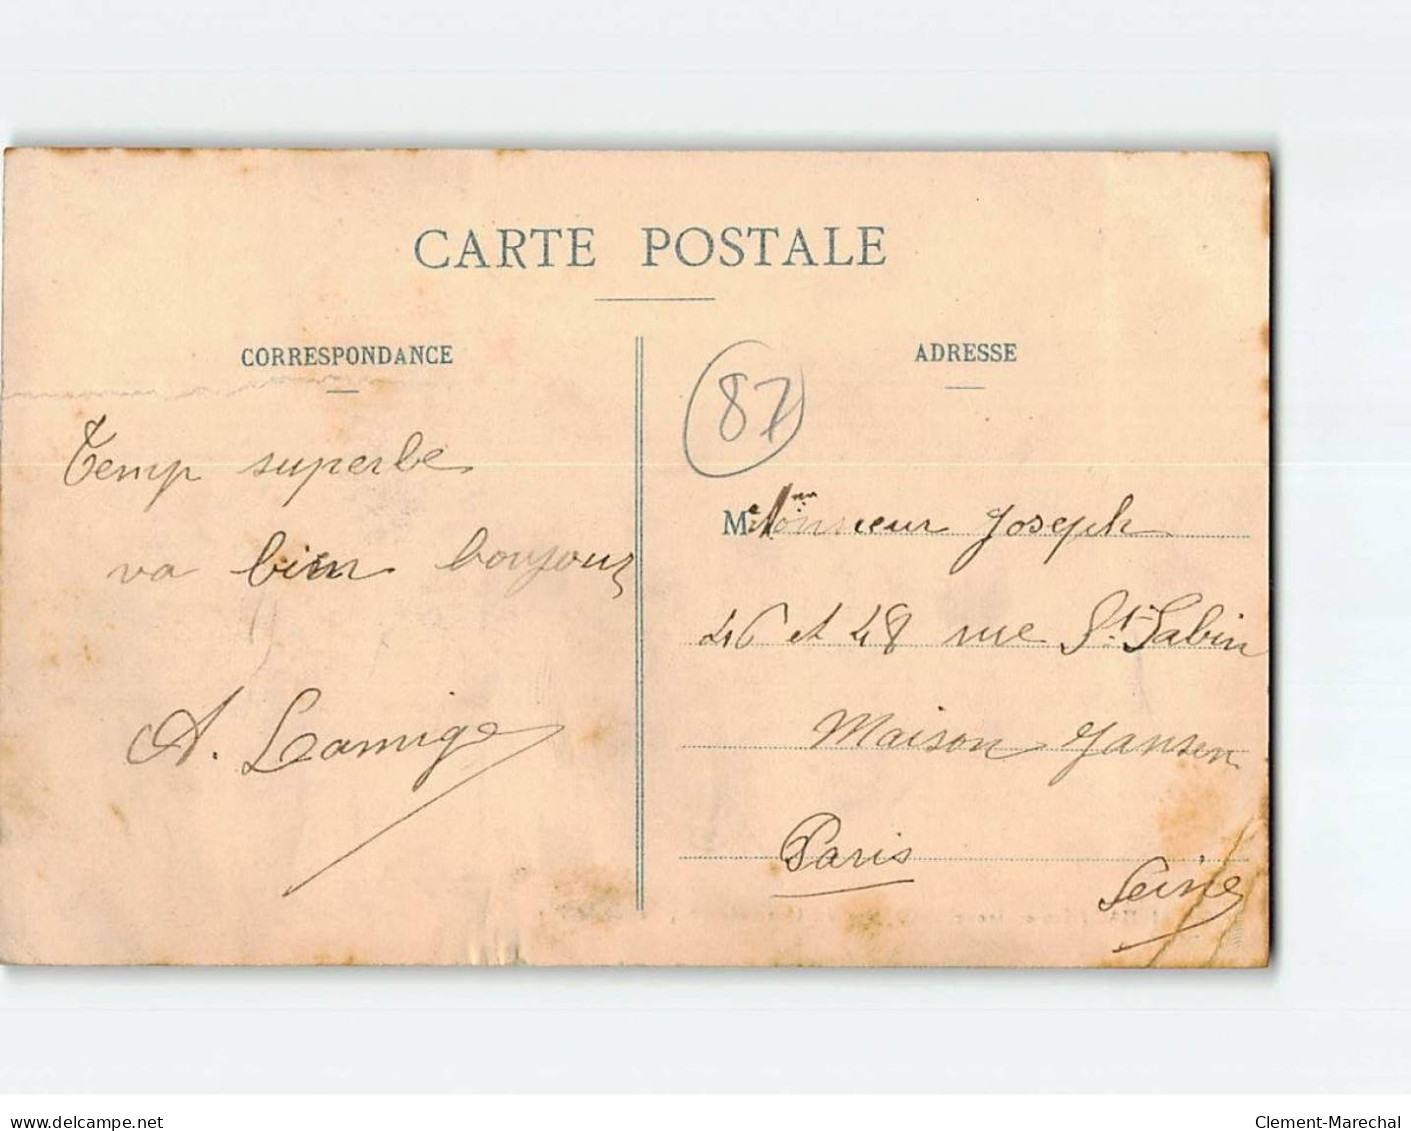 CARTE POSTALE
CORRESPONDANCE
Temp superbe
va bien bonjour
A. Lamige
ADRESSE
87
Monsieur Joseph
46 et 48 rue St. Sabin
Maison Jansen
Paris
Seine
delcampe.net
Clement-Marechal